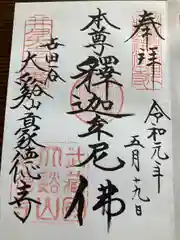 奉拝
令和元年
五月十九日
本尊
釋迦牟尼佛
世田谷
大谿山豪徳寺